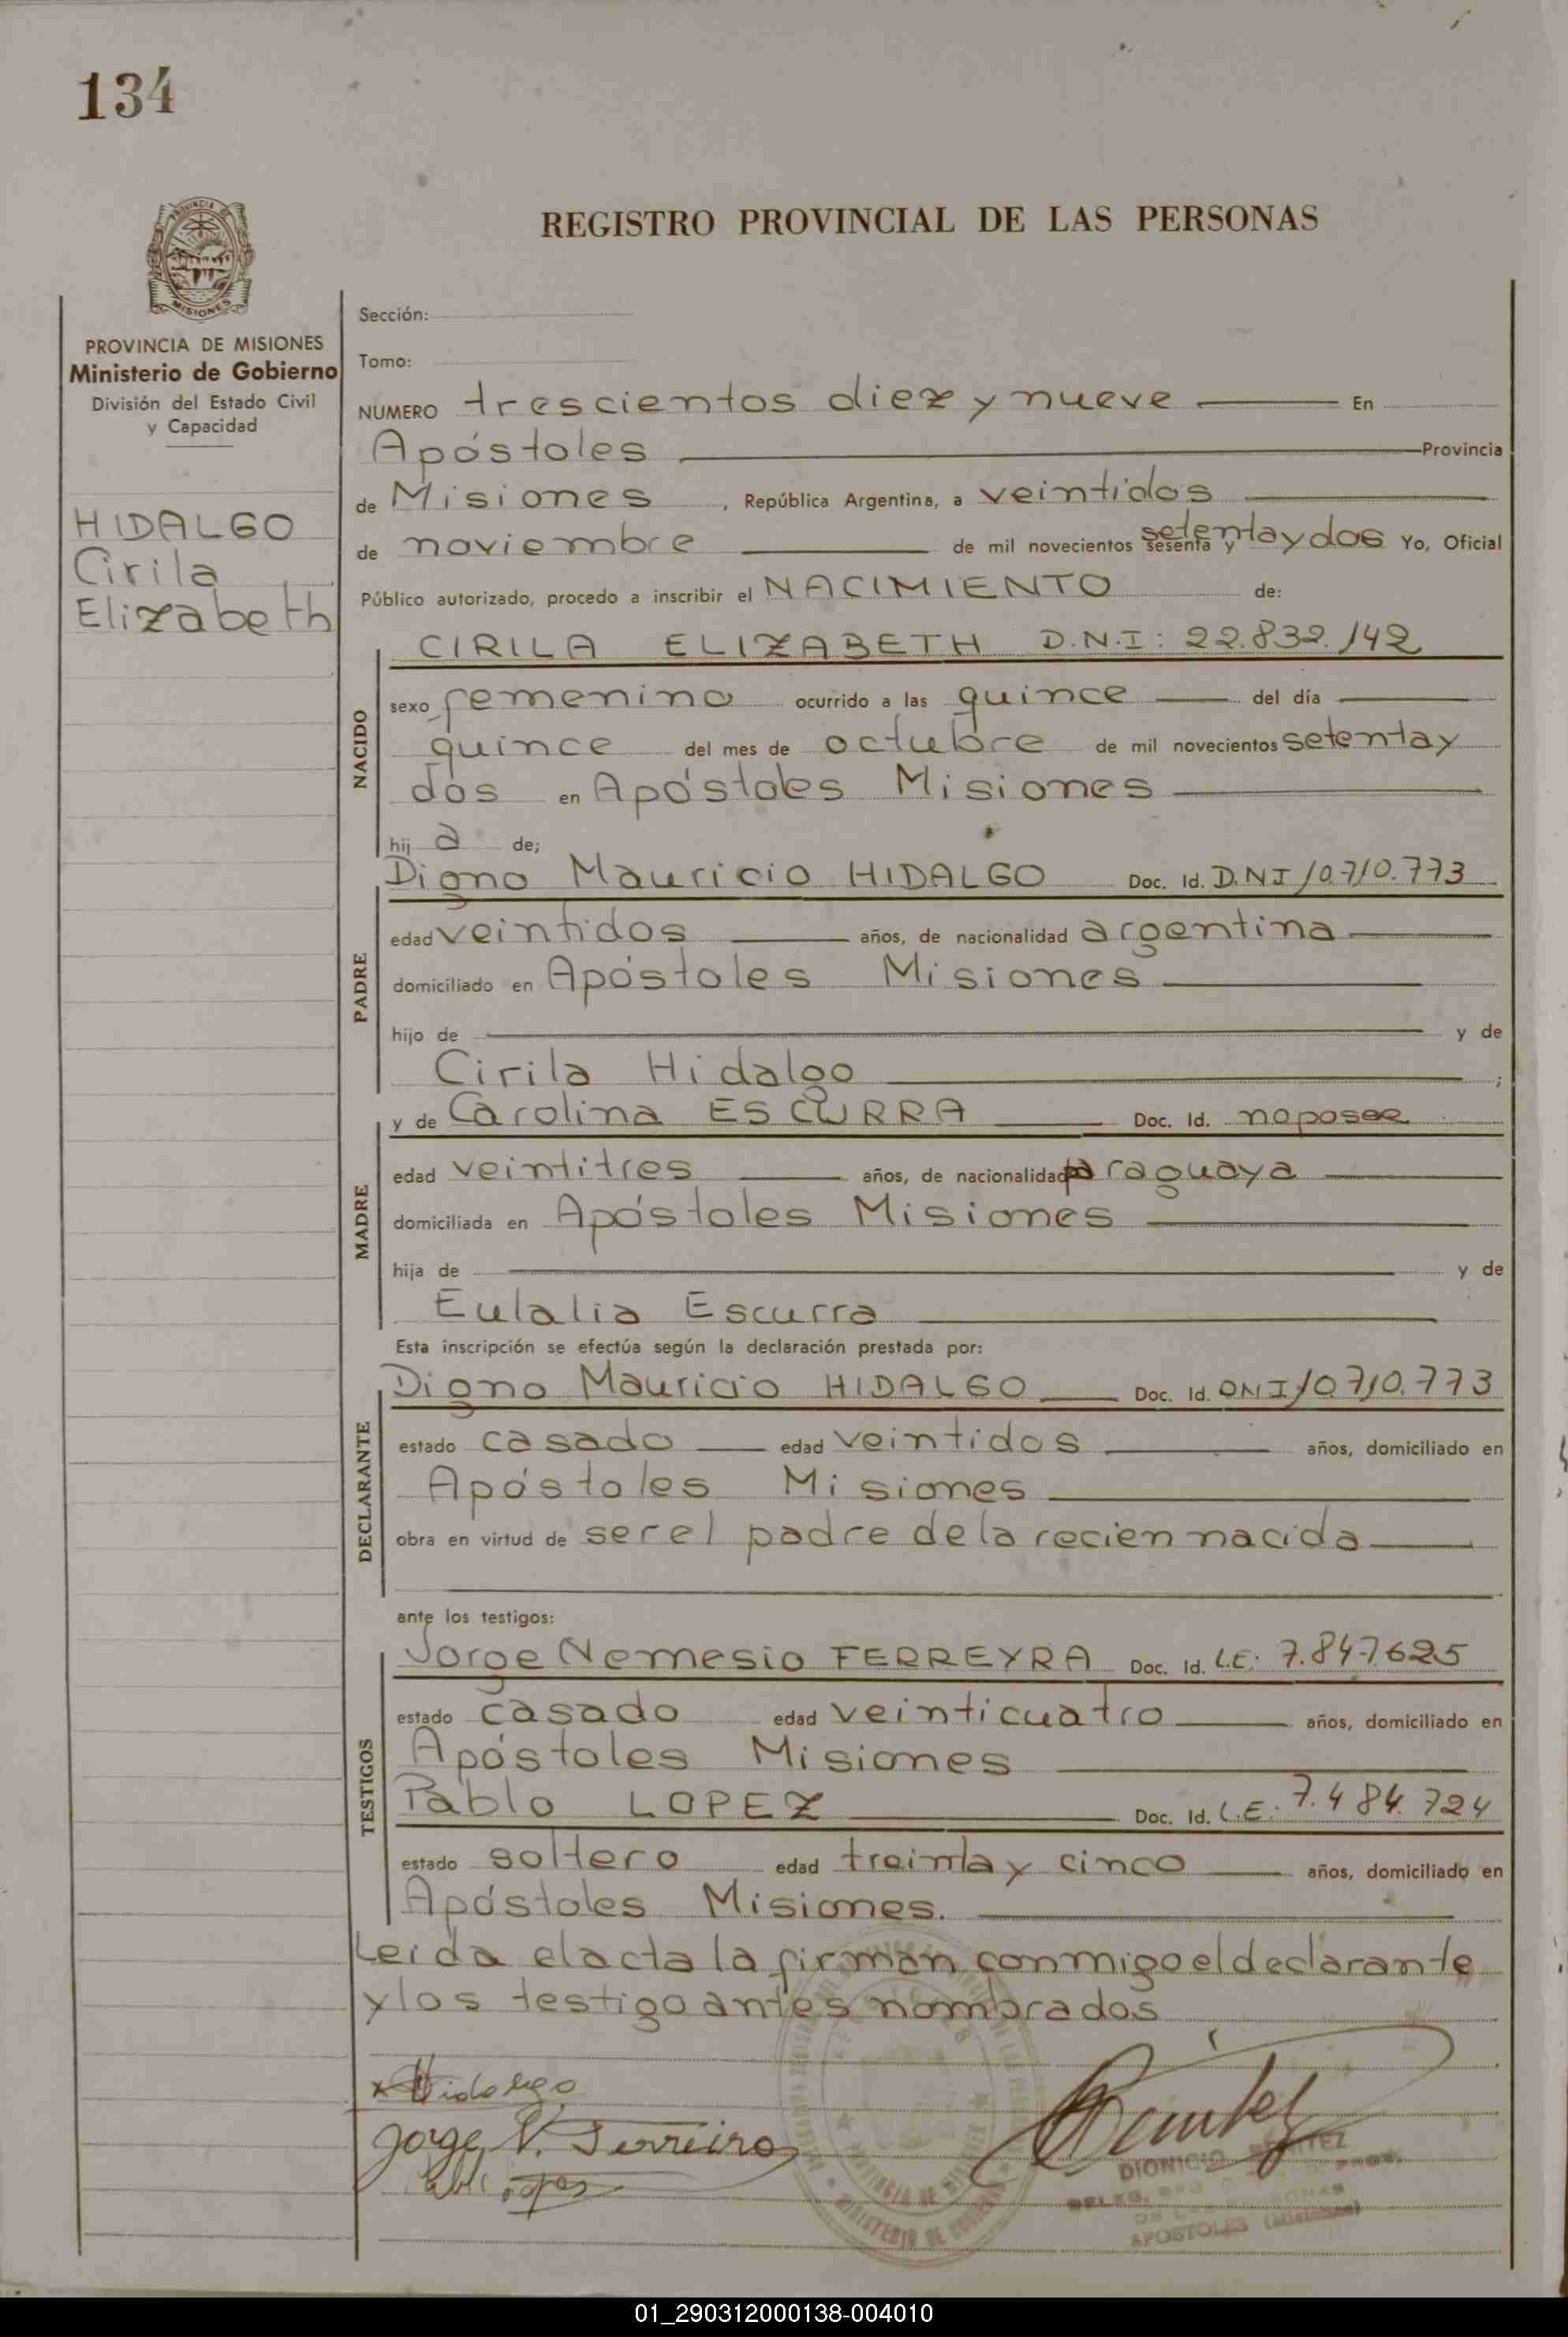 134
REGISTRO PROVINCIAL DE LAS PERSONAS
MISIONES
PROVINCIA DE MISIONES
Ministerio de Gobierno
División del Estado Civil
y Capacidad
HIDALGO
Cirila
Elizabeth
Sección:
Tomo:
NUMERO trescientos diez y nueve En
Apóstoles Provincia
de Misiones , República Argentina, a veintidos
de noviembre de mil novecientos sesenta y setentaydos Yo, Oficial
Público autorizado, procedo a inscribir el NACIMIENTO de:
NACIDO
CIRILA ELIZABETH D.N.I: 22.832.142
sexo femenino ocurrido a las quince del día
quince del mes de octubre de mil novecientos setentay
dos en Apóstoles Misiones
hij a de;
PADRE
Digno Mauricio HIDALGO Doc. Id. D.N.I 10.710.773
edad veintidos años, de nacionalidad argentina
domiciliado en Apóstoles Misiones
hijo de y de
Cirila Hidalgo ;
MADRE
y de Carolina ESCURRA Doc. Id. noposee
edad veintitres años, de nacionalidad paraguaya
domiciliada en Apóstoles Misiones
hija de y de
Eulalia Escurra
Esta inscripción se efectúa según la declaración prestada por:
DECLARANTE
Digno Mauricio HIDALGO Doc. Id. DNI 10.710.773
estado casado edad veintidos años, domiciliado en
Apóstoles Misiones
obra en virtud de ser el padre dela recien nacida
ante los testigos:
TESTIGOS
Jorge Nemesio FERREYRA Doc. Id. L.E: 7.847.625
estado casado edad veinticuatro años, domiciliado en
Apóstoles Misiones
Pablo LOPEZ Doc. Id. L.E: 7.484.724
estado soltero edad treinta y cinco años, domiciliado en
Apóstoles Misiones.
Leida elacta la firman conmigo eldeclarante
ylos testigo antes nombrados
Hidalgo
Jorge N. Ferreira
DIONICIO BENITEZ
APOSTOLES (Misiones)
01_290312000138-004010